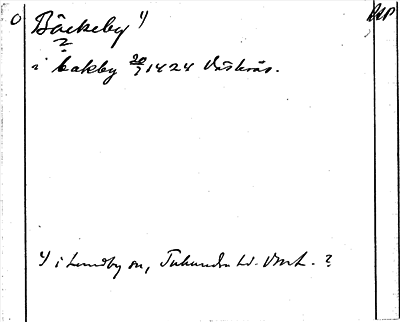 O Bäckeby 1) RAP
?
i bakby 20/7 1424 Västerås.
1) i Lundby sn, Tuhundra hd. Vml. ?